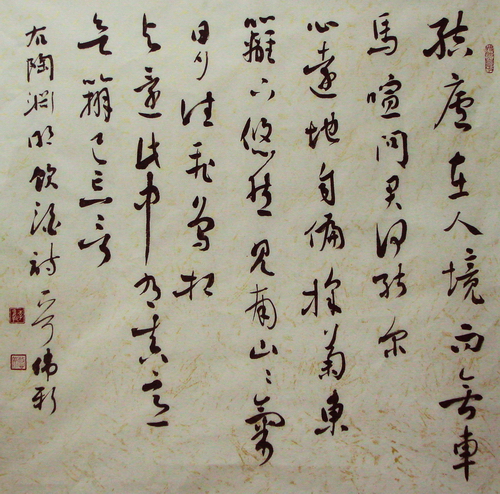 結廬在人境而無車
馬喧問君何能尔
心遠地自偏採菊東
籬下悠然見南山々氣
日夕佳飛鳥相
与還此中有真意
欲辯已忘言
右陶淵明飲酒詩一首